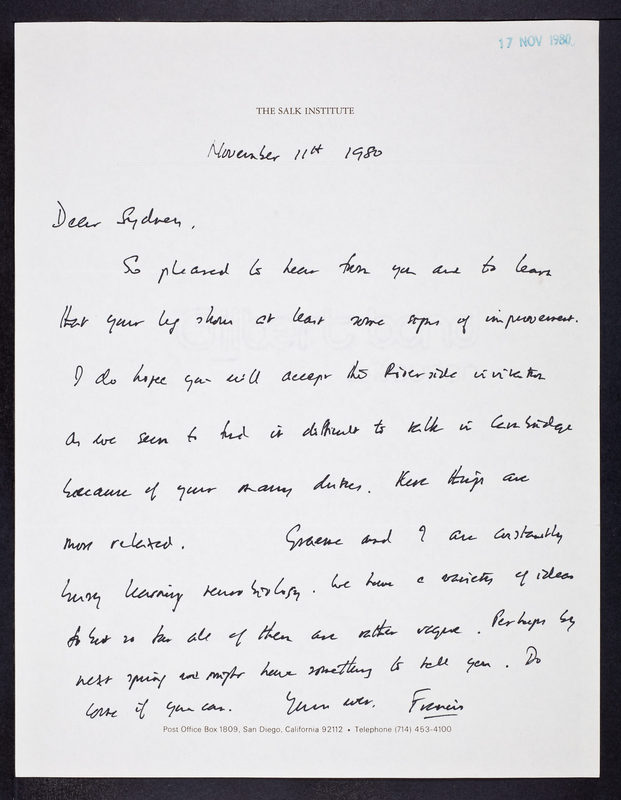 17 NOV 1980
THE SALK INSTITUTE
November 11th 1980
Dear Sydney,
So pleased to hear from you and to learn
that your leg shows at least some signs of improvement.
I do hope you will accept this Riverside invitation
as we seem to find it difficult to talk in Cambridge
because of your many duties. Here things are
more relaxed. Graeme and I are constantly
busy learning neurobiology. We have a variety of ideas
but so far all of them are rather vague. Perhaps by
next spring we might have something to tell you. Do
come if you can. Yours ever, Francis
Post Office Box 1809, San Diego, California 92112 • Telephone (714) 453-4100